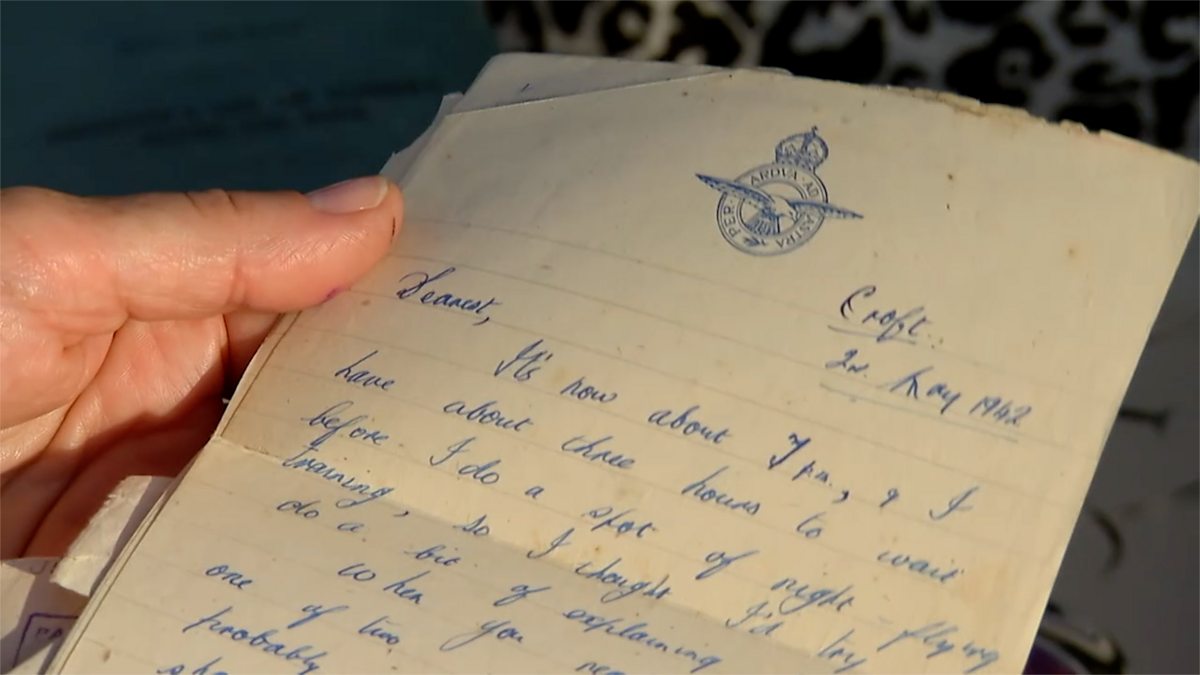 PER · ARDVA · AD ASTRA
Croft.
May 1942
Dearest,
It's now about 7 p.m., & I
have about three hours to wait
before I do a spot of night-flying
training, so I thought I'd try
do a bit of explaining
when you
one of two
probably